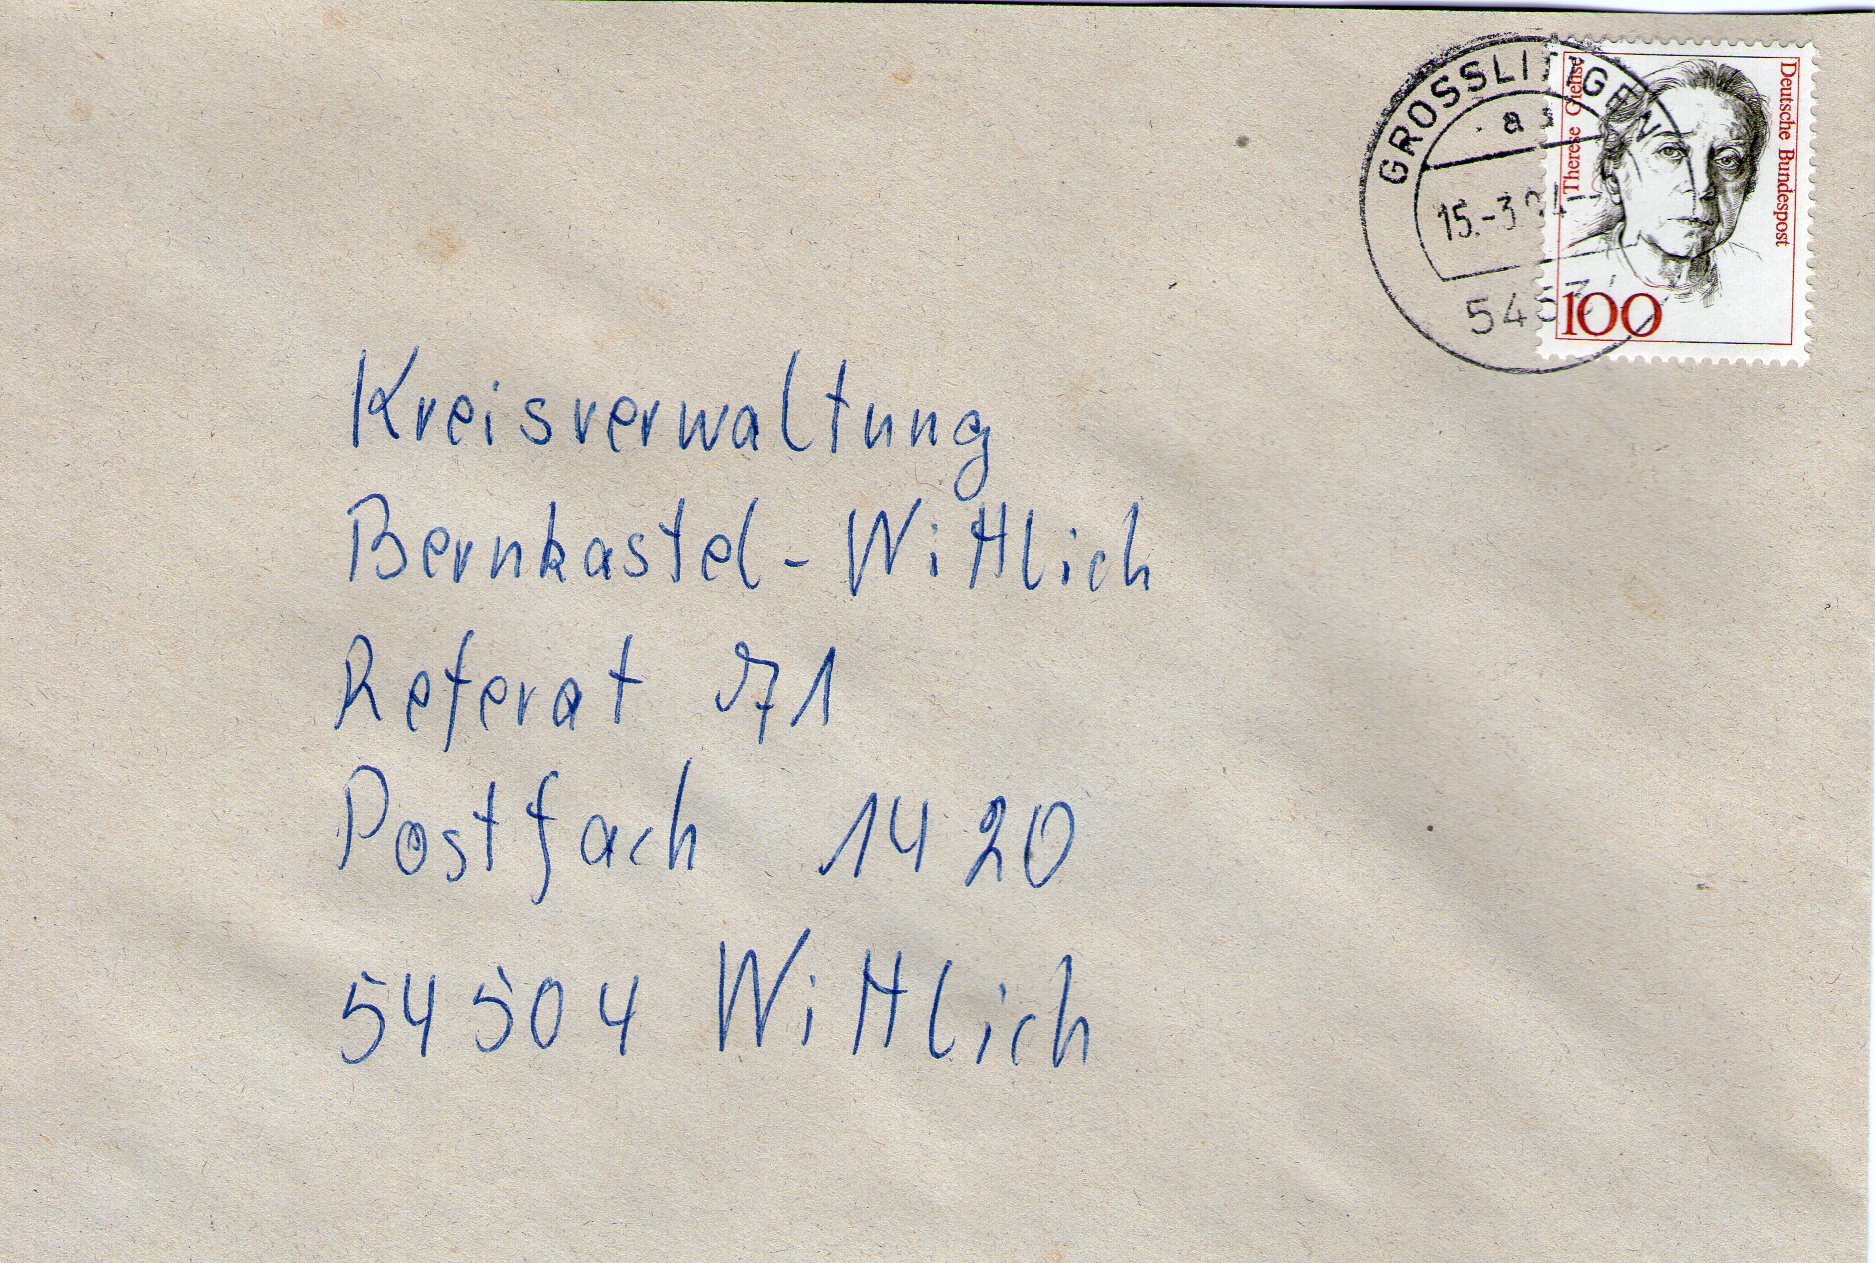 GROSSLITTGEN
a
15.-3.94
Therese Giehse
Deutsche Bundespost
100
Kreisverwaltung
Bernkastel-Wittlich
Referat 71
Postfach 1420
54504 Wittlich